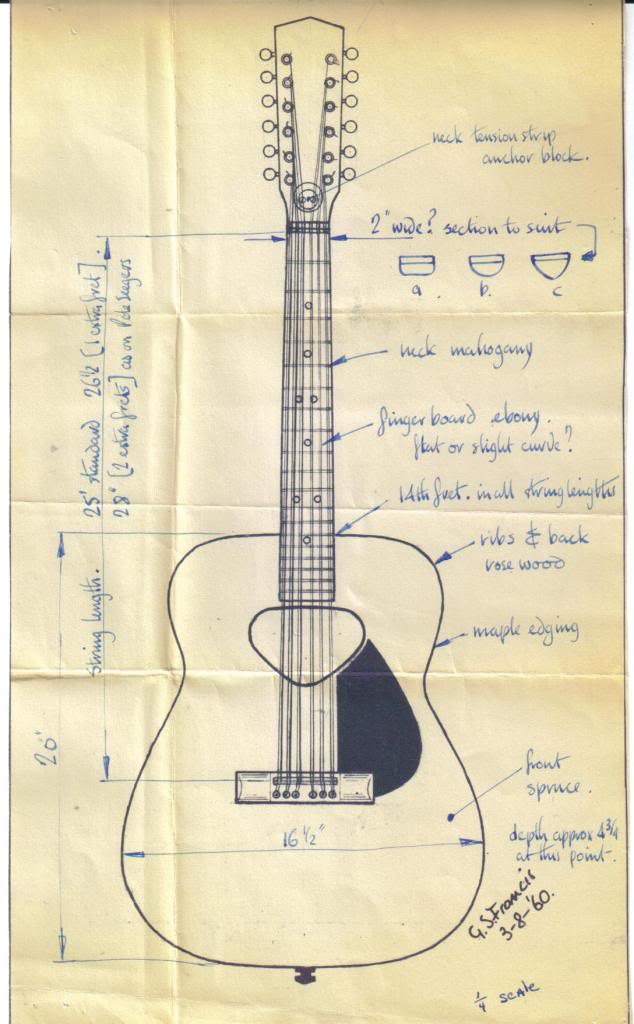 neck tension strip
anchor block.
2" wide? section to suit
a . b. c
neck mahogany
finger board ebony.
flat or slight curve?
14th fret. in all string lenghths
ribs & back
rose wood
maple edging
front
spruce.
depth approx 4 3/4
at this point.
G.S.Francis
3-8-'60.
1/4 scale
16 1/2"
20"
string length.
25" standard 26 1/2 [1 extra fret].
28" [2 extra frets] as on Pete Seegers